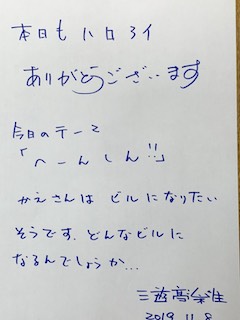 本日もハロライ
ありがとうございます
今日のテーマ
「へーんしん!!」
かえさんは ビルになりたい
そうです。どんなビルに
なるんでしょうか…
2019.11.8